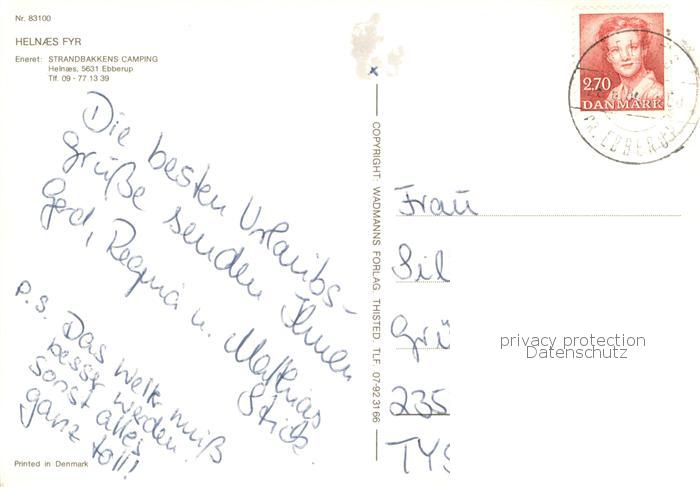 Nr. 83100
HELNÆS FYR
Eneret: STRANDBAKKENS CAMPING
Helnæs, 5631 Ebberup
Tlf. 09 - 77 13 39
Die besten Urlaubs-
grüße senden Ihnen
Gerd, Regina u. Matthias
Stick
P.S. Das Wetter muß
besser werden.
sonst alles
ganz toll!
Printed in Denmark
COPYRIGHT: WADMANNS FORLAG THISTED. TLF 07-92 31 66
2.70
DANMARK
EBBERUP
Frau
Sil
Grü
235
TYS
privacy protection
Datenschutz